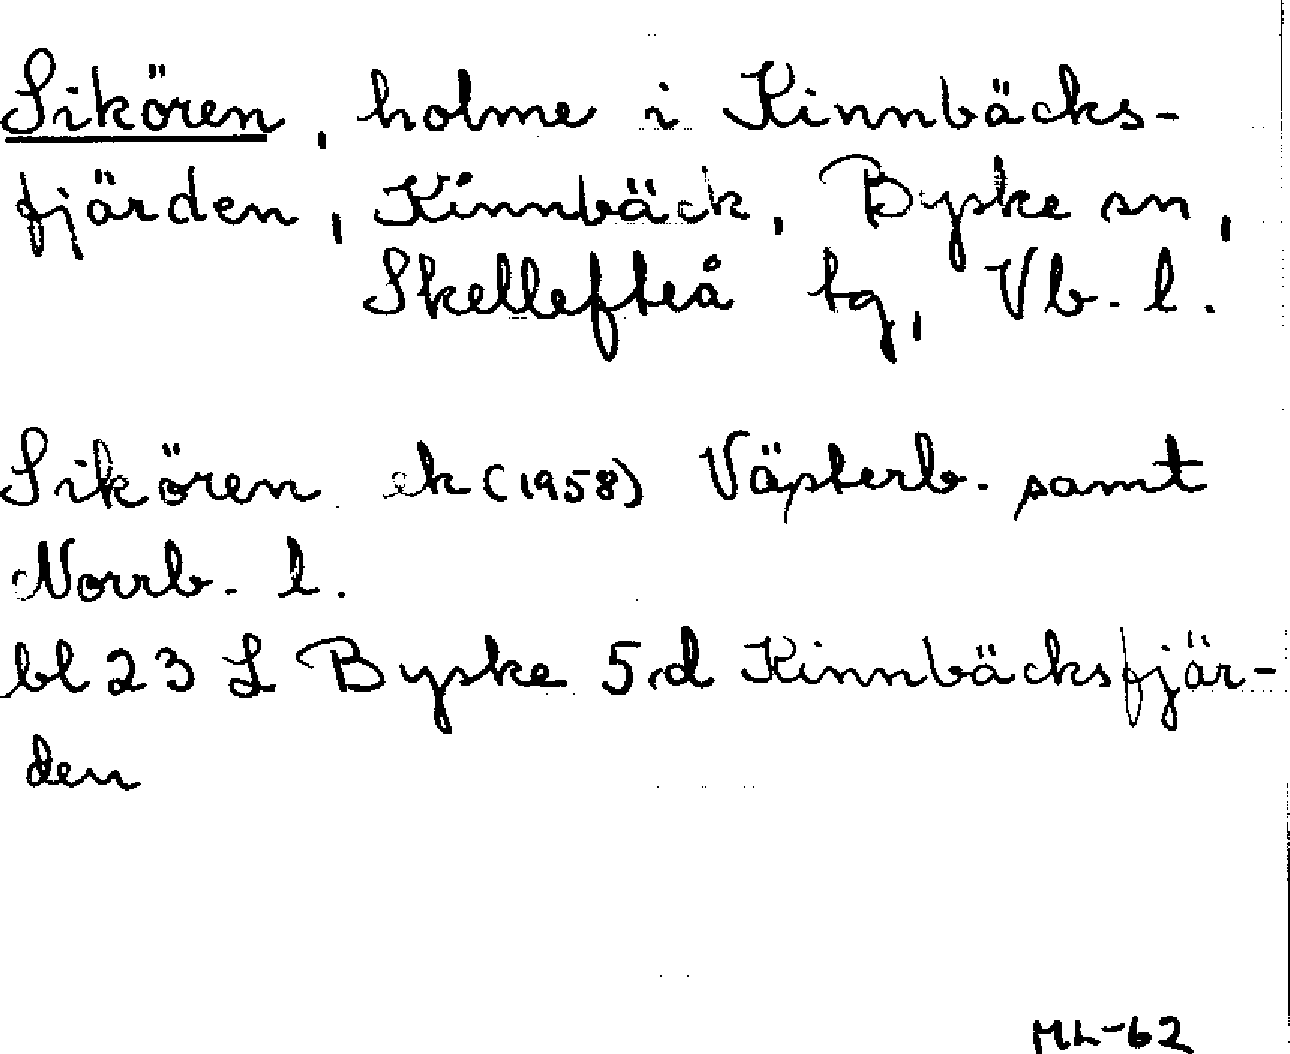 Sikören, holme i Kinnbäcks-
fjärden, Kinnbäck, Byske sn,
Skellefteå tg, Vb. l.
Sikören ek (1958) Västerb. samt
Norrb. l.
bl 23 L Byske 5d Kinnbäcksfjär-
den
ML-62